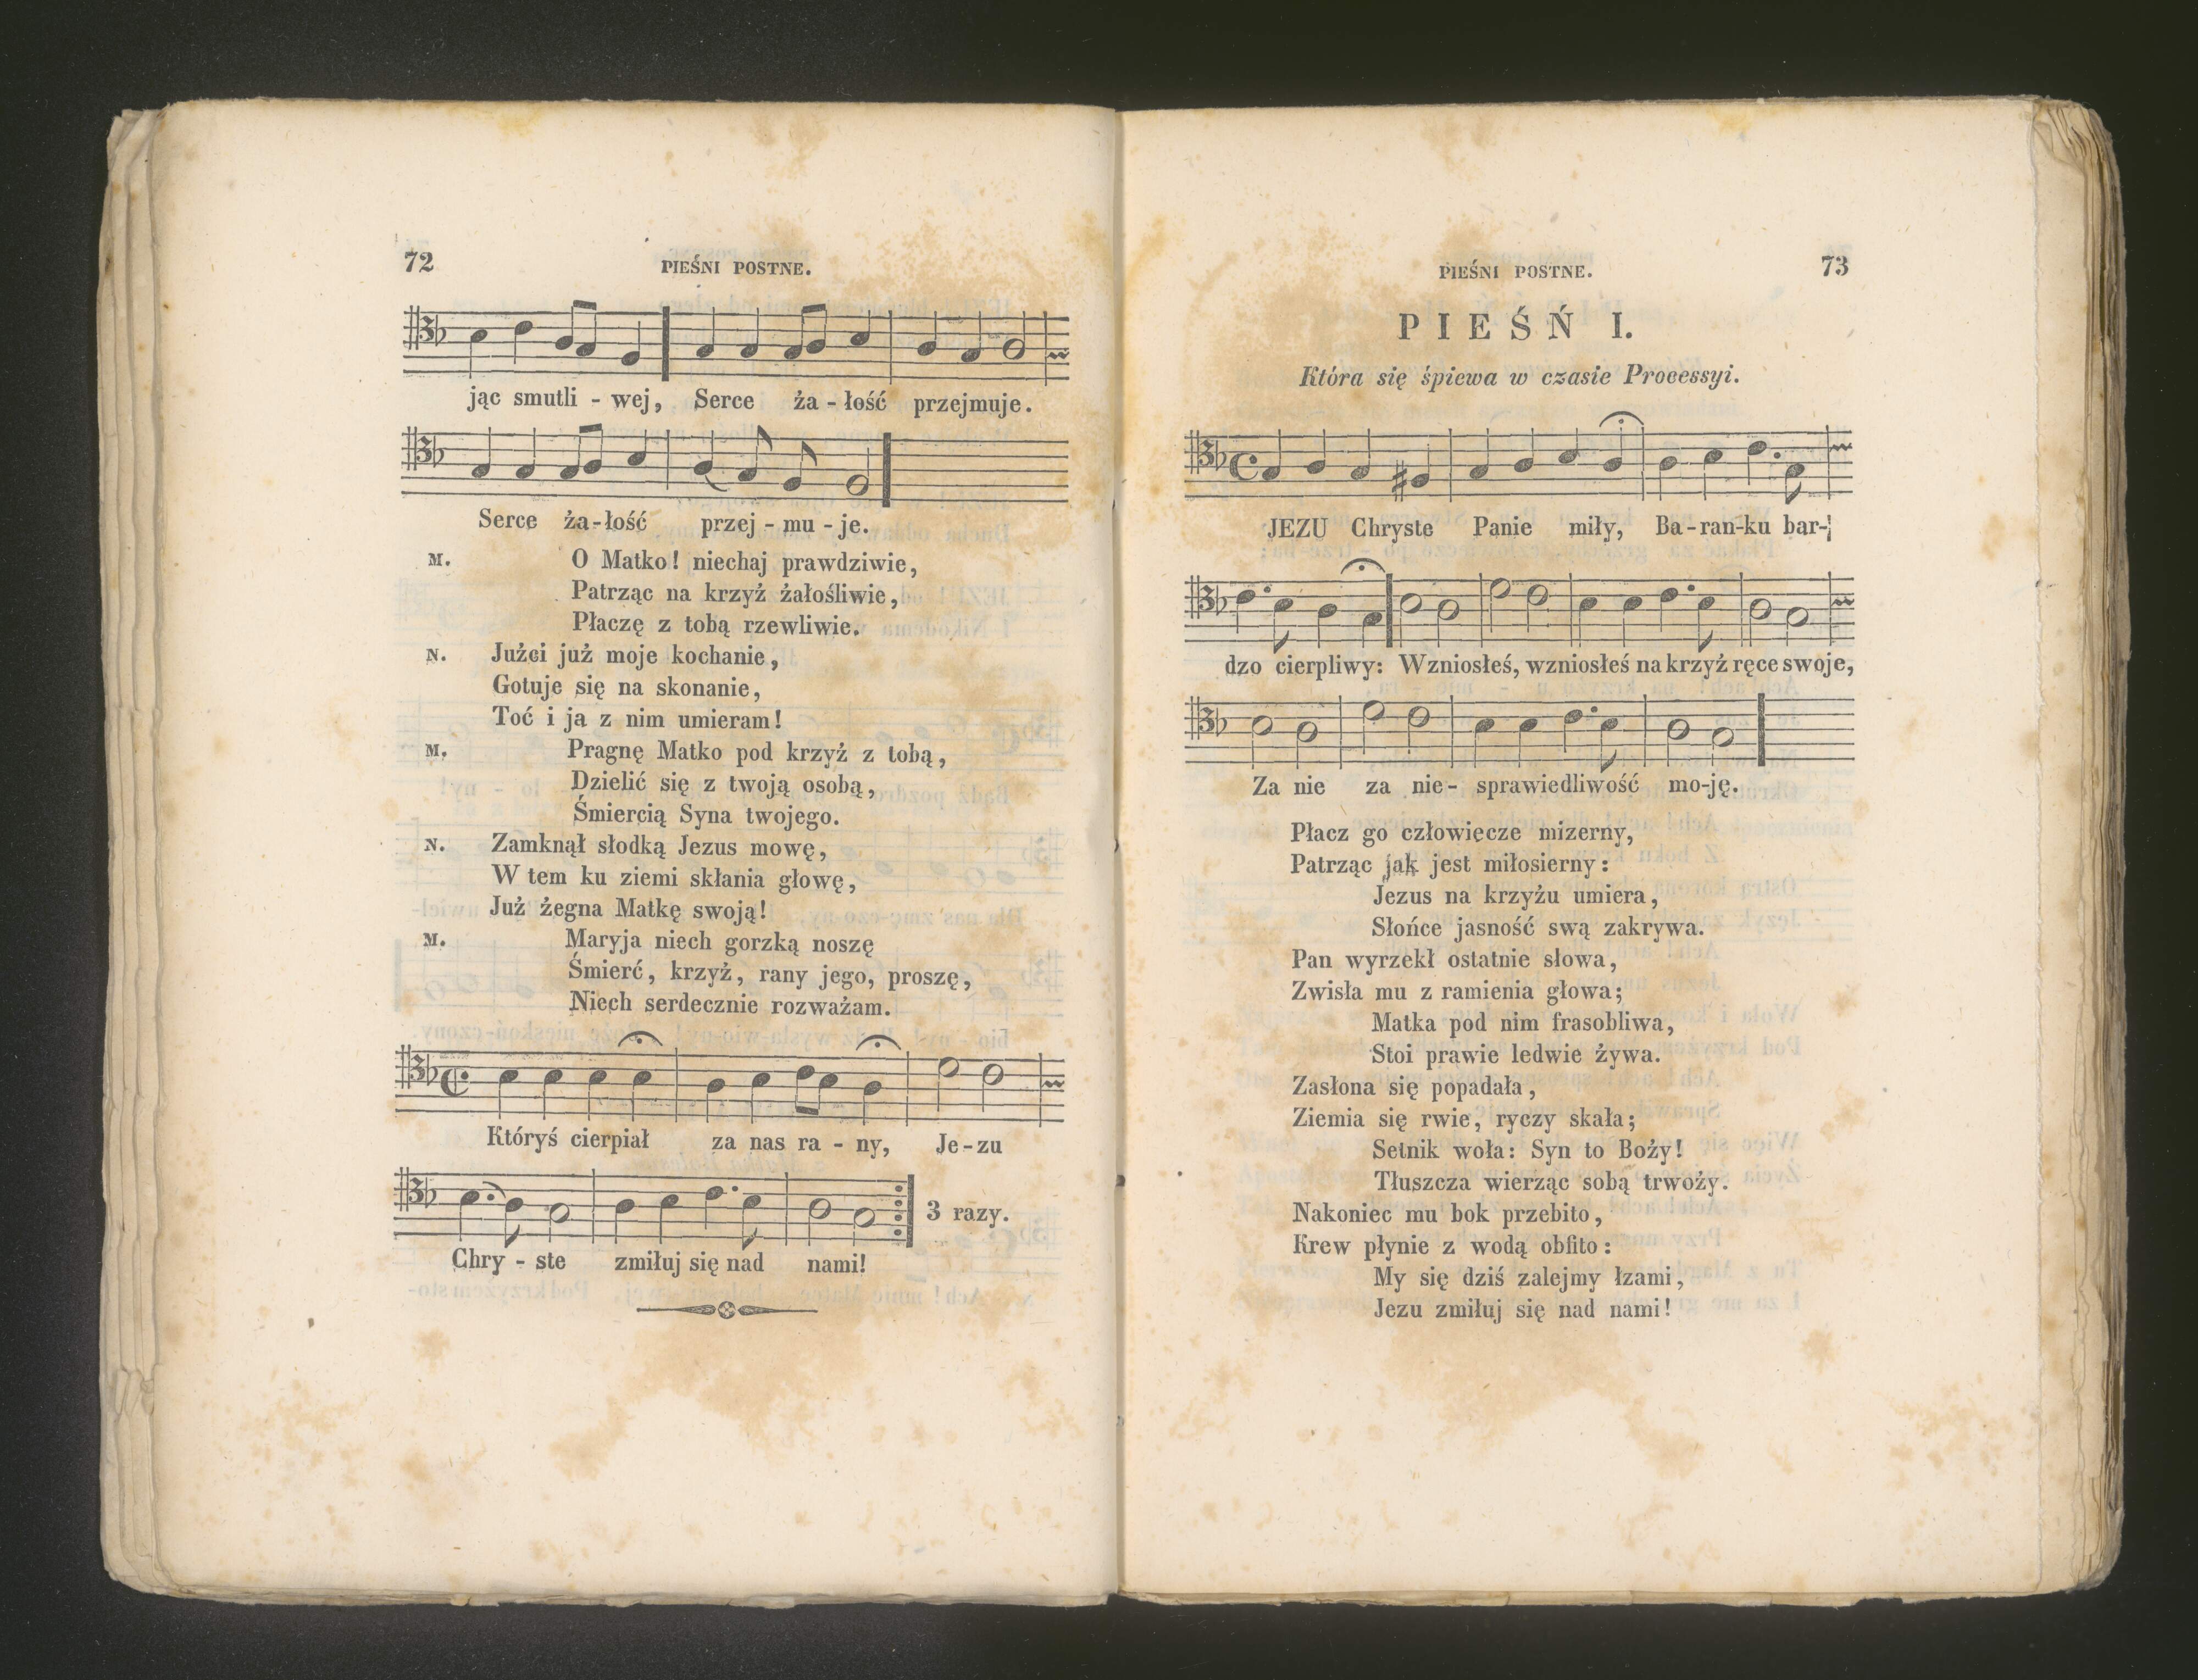 72
PIEŚNI POSTNE.
jąc smutli - wej, Serce ża - łość przejmuje.
Serce ża-łość przej - mu - je.
M. O Matko! niechaj prawdziwie,
Patrząc na krzyż żałośliwie,
Płaczę z tobą rzewliwie.
N. Jużci już moje kochanie,
Gotuje się na skonanie,
Toć i ja z nim umieram!
M. Pragnę Matko pod krzyż z tobą,
Dzielić się z twoją osobą,
Śmiercią Syna twojego.
N. Zamknął słodką Jezus mowę,
W tem ku ziemi skłania głowę,
Już żegna Matkę swoją!
M. Maryja niech gorzką noszę
Śmierć, krzyż, rany jego, proszę,
Niech serdecznie rozważam.
Któryś cierpiał za nas ra - ny, Je-zu
3 razy.
Chry - ste zmiłuj się nad nami!
PIEŚNI POSTNE.
73
PIEŚŃ I.
Która się śpiewa w czasie Processyi.
JEZU Chryste Panie miły, Ba-ran-ku bar-
dzo cierpliwy: Wzniosłeś, wzniosłeś na krzyż ręce swoje,
Za nie za nie- sprawiedliwość mo-ję.
Płacz go człowiecze mizerny,
Patrząc jak jest miłosierny:
Jezus na krzyżu umiera,
Słońce jasność swą zakrywa.
Pan wyrzekł ostatnie słowa,
Zwisła mu z ramienia głowa;
Matka pod nim frasobliwa,
Stoi prawie ledwie żywa.
Zasłona się popadała,
Ziemia się rwie, ryczy skała;
Setnik woła: Syn to Boży!
Tłuszcza wierząc sobą trwoży.
Nakoniec mu bok przebito,
Krew płynie z wodą obfito:
My się dziś zalejmy łzami,
Jezu zmiłuj się nad nami!